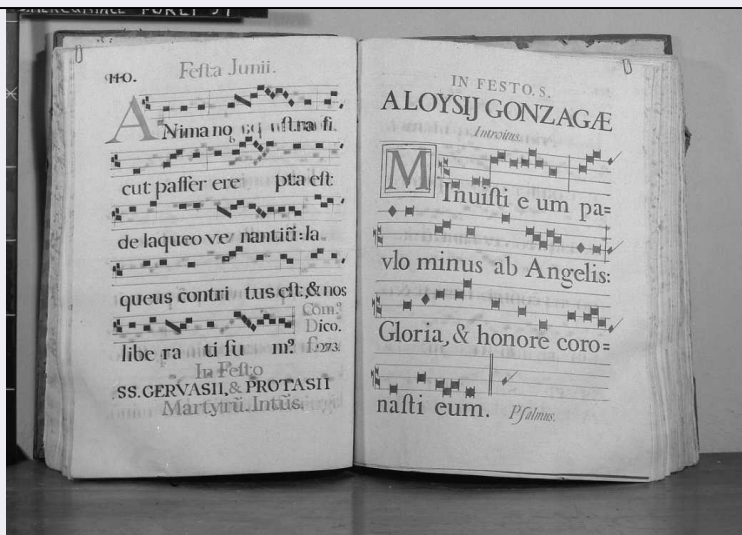 110.
Festa Junii.
ANima no stra si
cut passer ere pta est:
de laqueo ve nantiũ: la
queus contri tus est: & nos
Com.º
Dico.
libe ra ti su mº. f. 273.
In Festo
SS. GERVASII, & PROTASII
Martyrũ. Intũs.
IN FESTO. S.
ALOYSIJ GONZAGÆ
Introitus.
MInuisti e um pa=
vlo minus ab Angelis:
Gloria, & honore coro=
nasti eum. Psalmus.